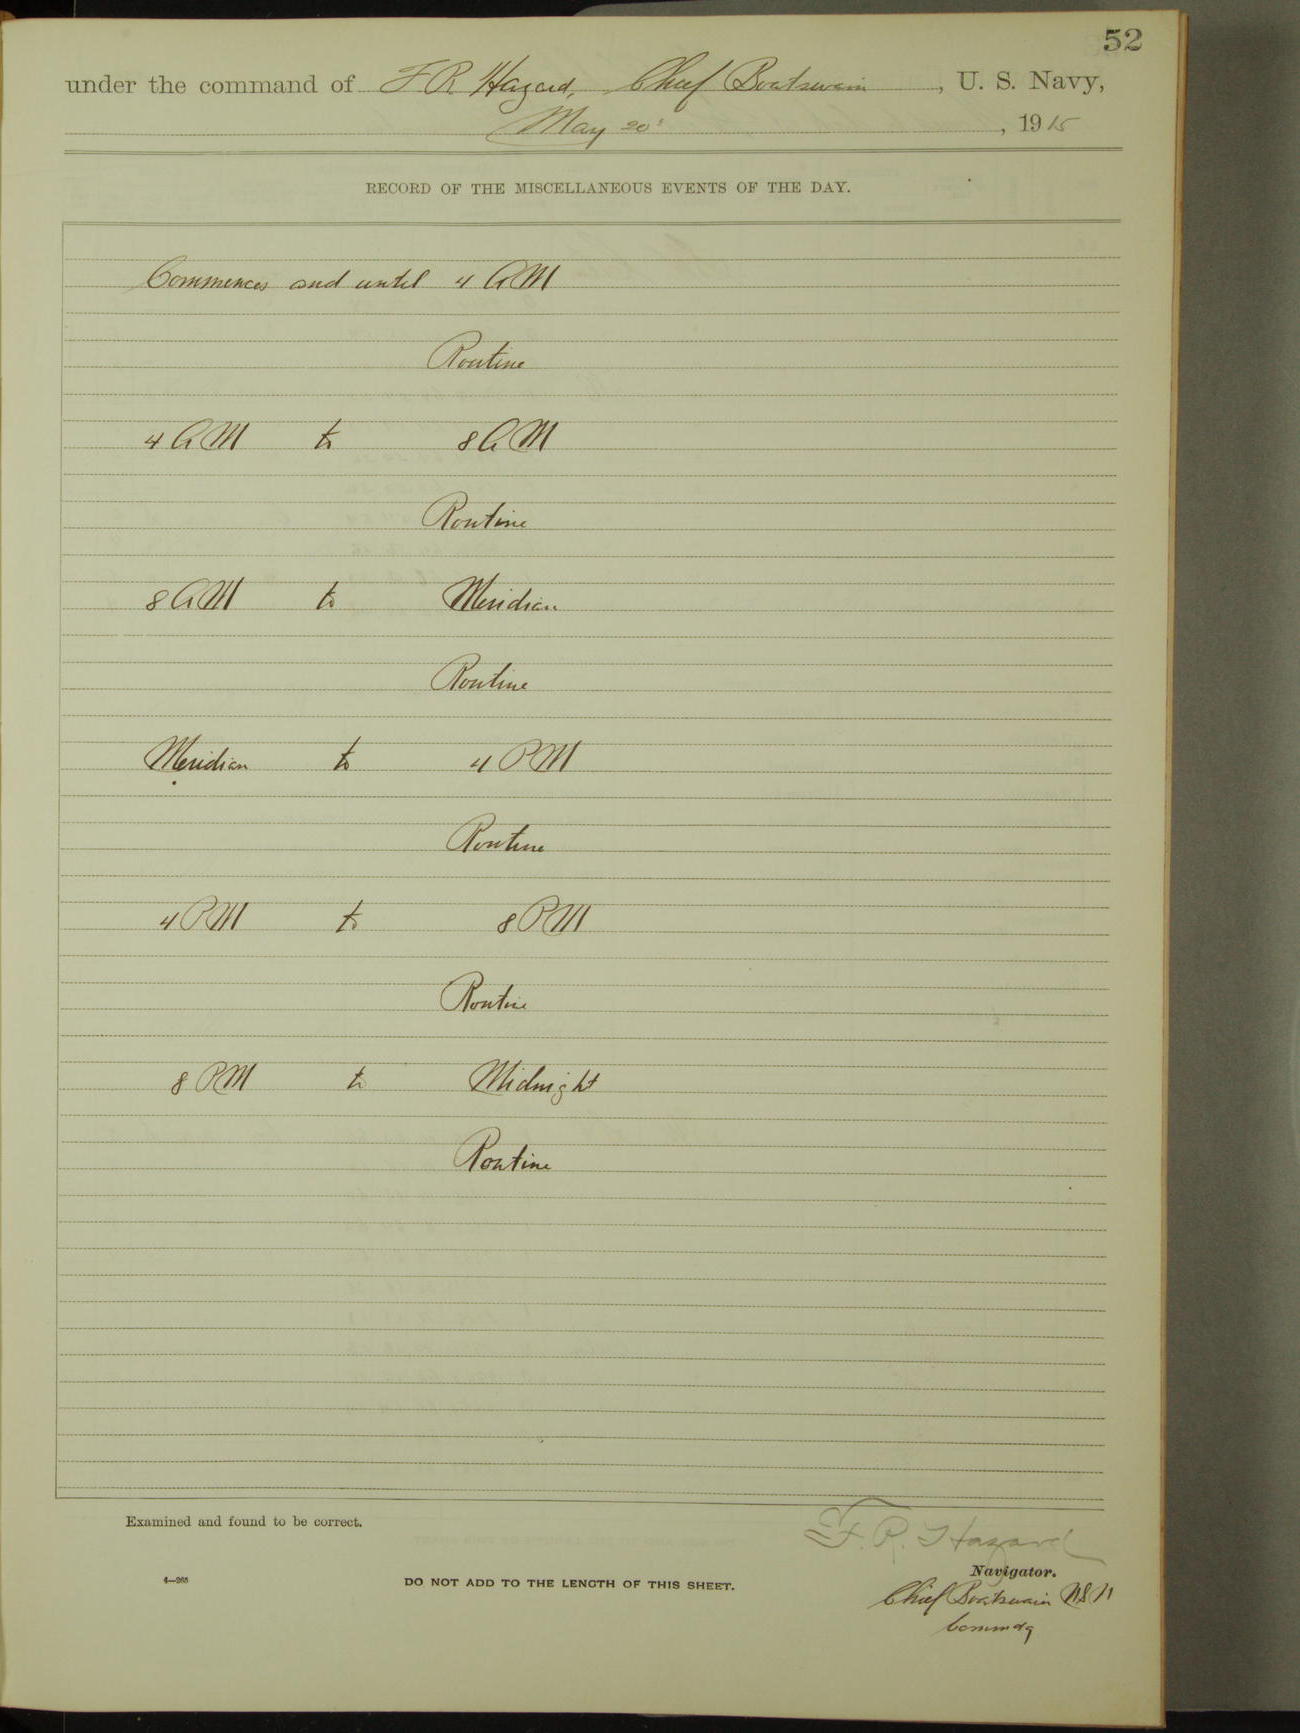 52
under the command of F R Hazard, Chief Boatswain, U. S. Navy,
May 20, 1915
RECORD OF THE MISCELLANEOUS EVENTS OF THE DAY.
Commences and until 4 AM
Routine
4 AM to 8 AM
Routine
8 AM to Meridian
Routine
Meridian to 4 PM
Routine
4 PM to 8 PM
Routine
8 PM to Midnight
Routine
Examined and found to be correct.
F. R. Hazard
Navigator.
4—265
DO NOT ADD TO THE LENGTH OF THIS SHEET.
Chief Boatswain USN
Commdg